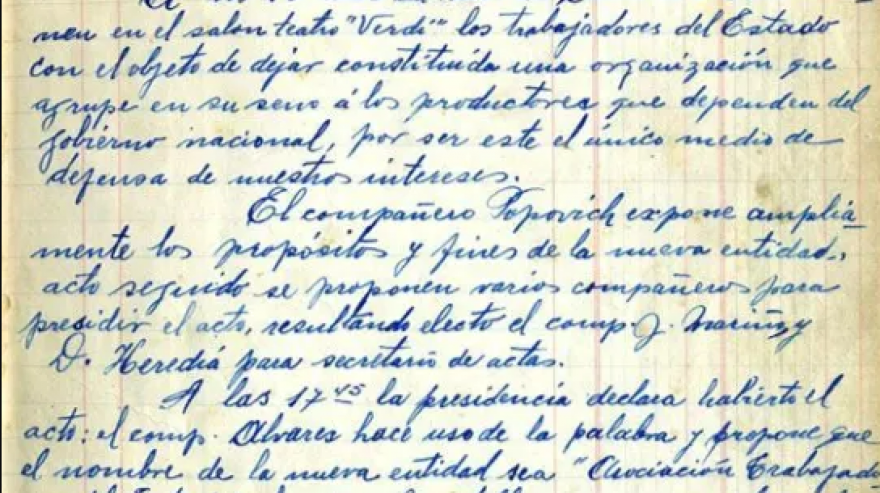 nen en el salon teatro "Verdi" los trabajadores del Estado
con el objeto de dejár constituída una organización que
agrupe en su seno á los productores que dependen del
gobierno nacional, por ser este el único medio de
defensa de nuestros intereses.
El compañero Popovich expone amplia-
mente los propósitos y fines de la nueva entidad,
acto seguido se proponen varios compañeros para
presidir el acto, resultando electo el comp. J. y
D. Herediá para secretario de actas.
A las 17 45 la presidencia declara habierto el
acto: el comp. Alvares hace uso de la palabra y propone que
el nombre de la nueva entidad sea "Asociación Trabajado